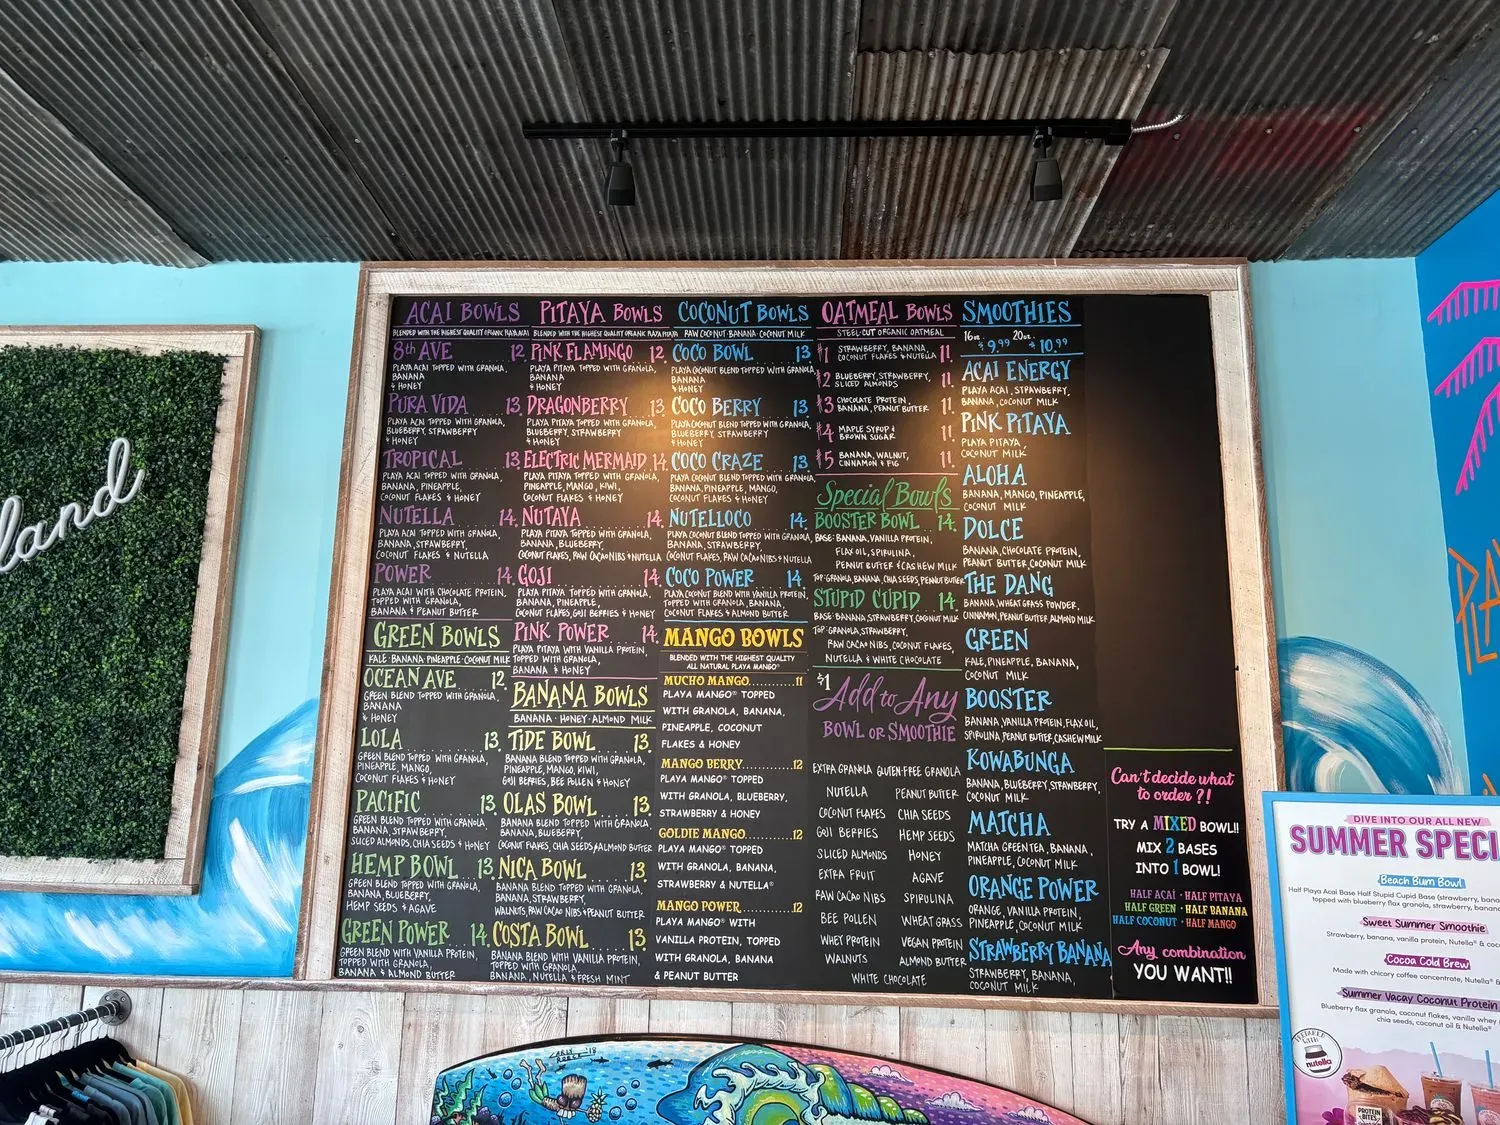 land
ACAI BOWLS
BLENDED WITH THE HIGHEST QUALITY ORGANIC PLAYA ACAI
8th AVE 12
PLAYA ACAI TOPPED WITH GRANOLA,
BANANA
& HONEY
PURA VIDA 13
PLAYA ACAI TOPPED WITH GRANOLA,
BLUEBERRY, STRAWBERRY
& HONEY
TROPICAL 13
PLAYA ACAI TOPPED WITH GRANOLA,
BANANA, PINEAPPLE,
COCONUT FLAKES & HONEY
NUTELLA 14
PLAYA ACAI TOPPED WITH GRANOLA,
BANANA, STRAWBERRY,
COCONUT FLAKES & NUTELLA
POWER 14
PLAYA ACAI WITH CHOCOLATE PROTEIN,
TOPPED WITH GRANOLA,
BANANA & PEANUT BUTTER
GREEN BOWLS
KALE·BANANA·PINEAPPLE·COCONUT MILK
OCEAN AVE 12
GREEN BLEND TOPPED WITH GRANOLA,
BANANA
& HONEY
LOLA 13
GREEN BLEND TOPPED WITH GRANOLA,
PINEAPPLE, MANGO,
COCONUT FLAKES & HONEY
PACIFIC 13
GREEN BLEND TOPPED WITH GRANOLA,
BANANA, STRAWBERRY,
SLICED ALMONDS, CHIA SEEDS & HONEY
HEMP BOWL 13
GREEN BLEND TOPPED WITH GRANOLA,
BANANA, BLUEBERRY,
HEMP SEEDS & AGAVE
GREEN POWER 14
GREEN BLEND WITH VANILLA PROTEIN,
TOPPED WITH GRANOLA,
BANANA & ALMOND BUTTER
PITAYA BOWLS
BLENDED WITH THE HIGHEST QUALITY ORGANIC PLAYA PITAYA
PINK FLAMINGO 12
PLAYA PITAYA TOPPED WITH GRANOLA,
BANANA
& HONEY
DRAGONBERRY 13
PLAYA PITAYA TOPPED WITH GRANOLA,
BLUEBERRY, STRAWBERRY
& HONEY
ELECTRIC MERMAID 14
PLAYA PITAYA TOPPED WITH GRANOLA,
PINEAPPLE, MANGO, KIWI,
COCONUT FLAKES & HONEY
NUTAYA 14
PLAYA PITAYA TOPPED WITH GRANOLA,
BANANA, BLUEBERRY
COCONUT FLAKES, RAW CACAO NIBS & NUTELLA
GOJI 14
PLAYA PITAYA TOPPED WITH GRANOLA,
BANANA, PINEAPPLE,
COCONUT FLAKES, GOJI BERRIES & HONEY
PINK POWER 14
PLAYA PITAYA WITH VANILLA PROTEIN,
TOPPED WITH GRANOLA,
BANANA & HONEY
BANANA BOWLS
BANANA · HONEY · ALMOND MILK
TIDE BOWL 13
BANANA BLEND TOPPED WITH GRANOLA,
PINEAPPLE, MANGO, KIWI,
GOJI BERRIES, BEE POLLEN & HONEY
OLAS BOWL 13
BANANA BLEND TOPPED WITH GRANOLA,
BANANA, BLUEBERRY,
COCONUT FLAKES, CHIA SEEDS & ALMOND BUTTER
NICA BOWL 13
BANANA BLEND TOPPED WITH GRANOLA,
BANANA, STRAWBERRY,
WALNUTS, RAW CACAO NIBS & PEANUT BUTTER
COSTA BOWL 13
BANANA BLEND WITH VANILLA PROTEIN,
TOPPED WITH GRANOLA
BANANA, NUTELLA & FRESH MINT
COCONUT BOWLS
RAW COCONUT·BANANA·COCONUT MILK
COCO BOWL 13
PLAYA COCONUT BLEND TOPPED WITH GRANOLA,
BANANA
& HONEY
COCO BERRY 13
PLAYA COCONUT BLEND TOPPED WITH GRANOLA,
BLUEBERRY, STRAWBERRY
& HONEY
COCO CRAZE 13
PLAYA COCONUT BLEND TOPPED WITH GRANOLA,
BANANA, PINEAPPLE, MANGO,
COCONUT FLAKES & HONEY
NUTELLOCO 14
PLAYA COCONUT BLEND TOPPED WITH GRANOLA,
BANANA, STRAWBERRY,
COCONUT FLAKES, RAW CACAO NIBS & NUTELLA
COCO POWER 14
PLAYA COCONUT BLEND WITH VANILLA PROTEIN,
TOPPED WITH GRANOLA, BANANA,
COCONUT FLAKES & ALMOND BUTTER
MANGO BOWLS
BLENDED WITH THE HIGHEST QUALITY
ALL NATURAL PLAYA MANGO®
MUCHO MANGO..........11
PLAYA MANGO® TOPPED
WITH GRANOLA, BANANA,
PINEAPPLE, COCONUT
FLAKES & HONEY
MANGO BERRY..........12
PLAYA MANGO® TOPPED
WITH GRANOLA, BLUEBERRY,
STRAWBERRY & HONEY
GOLDIE MANGO..........12
PLAYA MANGO® TOPPED
WITH GRANOLA, BANANA,
STRAWBERRY & NUTELLA®
MANGO POWER..........12
PLAYA MANGO® WITH
VANILLA PROTEIN, TOPPED
WITH GRANOLA, BANANA
& PEANUT BUTTER
OATMEAL BOWLS
STEEL-CUT ORGANIC OATMEAL
#1 STRAWBERRY, BANANA, 11
COCONUT FLAKES & NUTELLA
#2 BLUEBERRY, STRAWBERRY, 11
SLICED ALMONDS
#3 CHOCOLATE PROTEIN, 11
BANANA, PEANUT BUTTER
#4 MAPLE SYRUP & 11
BROWN SUGAR
#5 BANANA, WALNUT, 11
CINNAMON & FIG
Special Bowls
BOOSTER BOWL 14
BASE: BANANA, VANILLA PROTEIN,
FLAX OIL, SPIRULINA,
PEANUT BUTTER & CASHEW MILK
TOP: GRANOLA, BANANA, CHIA SEEDS, PEANUT BUTTER
STUPID CUPID 14
BASE: BANANA, STRAWBERRY, COCONUT MILK
TOP: GRANOLA, STRAWBERRY,
RAW CACAO NIBS, COCONUT FLAKES,
NUTELLA & WHITE CHOCOLATE
$1
Add to Any
BOWL OR SMOOTHIE
EXTRA GRANOLA GLUTEN-FREE GRANOLA
NUTELLA PEANUT BUTTER
COCONUT FLAKES CHIA SEEDS
GOJI BERRIES HEMP SEEDS
SLICED ALMONDS HONEY
EXTRA FRUIT AGAVE
RAW CACAO NIBS SPIRULINA
BEE POLLEN WHEAT GRASS
WHEY PROTEIN VEGAN PROTEIN
WALNUTS ALMOND BUTTER
WHITE CHOCOLATE
SMOOTHIES
16oz. $9.99 20oz. $10.99
ACAI ENERGY
PLAYA ACAI, STRAWBERRY,
BANANA, COCONUT MILK
PINK PITAYA
PLAYA PITAYA,
COCONUT MILK
ALOHA
BANANA, MANGO, PINEAPPLE,
COCONUT MILK
DOLCE
BANANA, CHOCOLATE PROTEIN,
PEANUT BUTTER, COCONUT MILK
THE DANG
BANANA, WHEAT GRASS POWDER,
CINNAMON, PEANUT BUTTER, ALMOND MILK
GREEN
KALE, PINEAPPLE, BANANA,
COCONUT MILK
BOOSTER
BANANA, VANILLA PROTEIN, FLAX OIL,
SPIRULINA, PEANUT BUTTER, CASHEW MILK
KOWABUNGA
BANANA, BLUEBERRY, STRAWBERRY,
COCONUT MILK
MATCHA
MATCHA GREEN TEA, BANANA,
PINEAPPLE, COCONUT MILK
ORANGE POWER
ORANGE, VANILLA PROTEIN,
PINEAPPLE, COCONUT MILK
STRAWBERRY BANANA
STRAWBERRY, BANANA,
COCONUT MILK
Can't decide what
to order?!
TRY A MIXED BOWL!!
MIX 2 BASES
INTO 1 BOWL!
HALF AÇAÍ · HALF PITAYA
HALF GREEN · HALF BANANA
HALF COCONUT · HALF MANGO
Any combination
YOU WANT!!
DIVE INTO OUR ALL NEW
SUMMER SPECI
Beach Bum Bowl
Half Playa Acai Base Half Stupid Cupid Base (strawberry, bana
topped with blueberry flax granola, strawberry, banan
Sweet Summer Smoothie
Strawberry, banana, vanilla protein, Nutella® & coc
Cocoa Cold Brew
Made with chicory coffee concentrate, Nutella® &
Summer Vacay Coconut Protein
Blueberry flax granola, coconut flakes, vanilla whey
chia seeds, coconut oil & Nutella®
nutella
PROTEIN
BITES